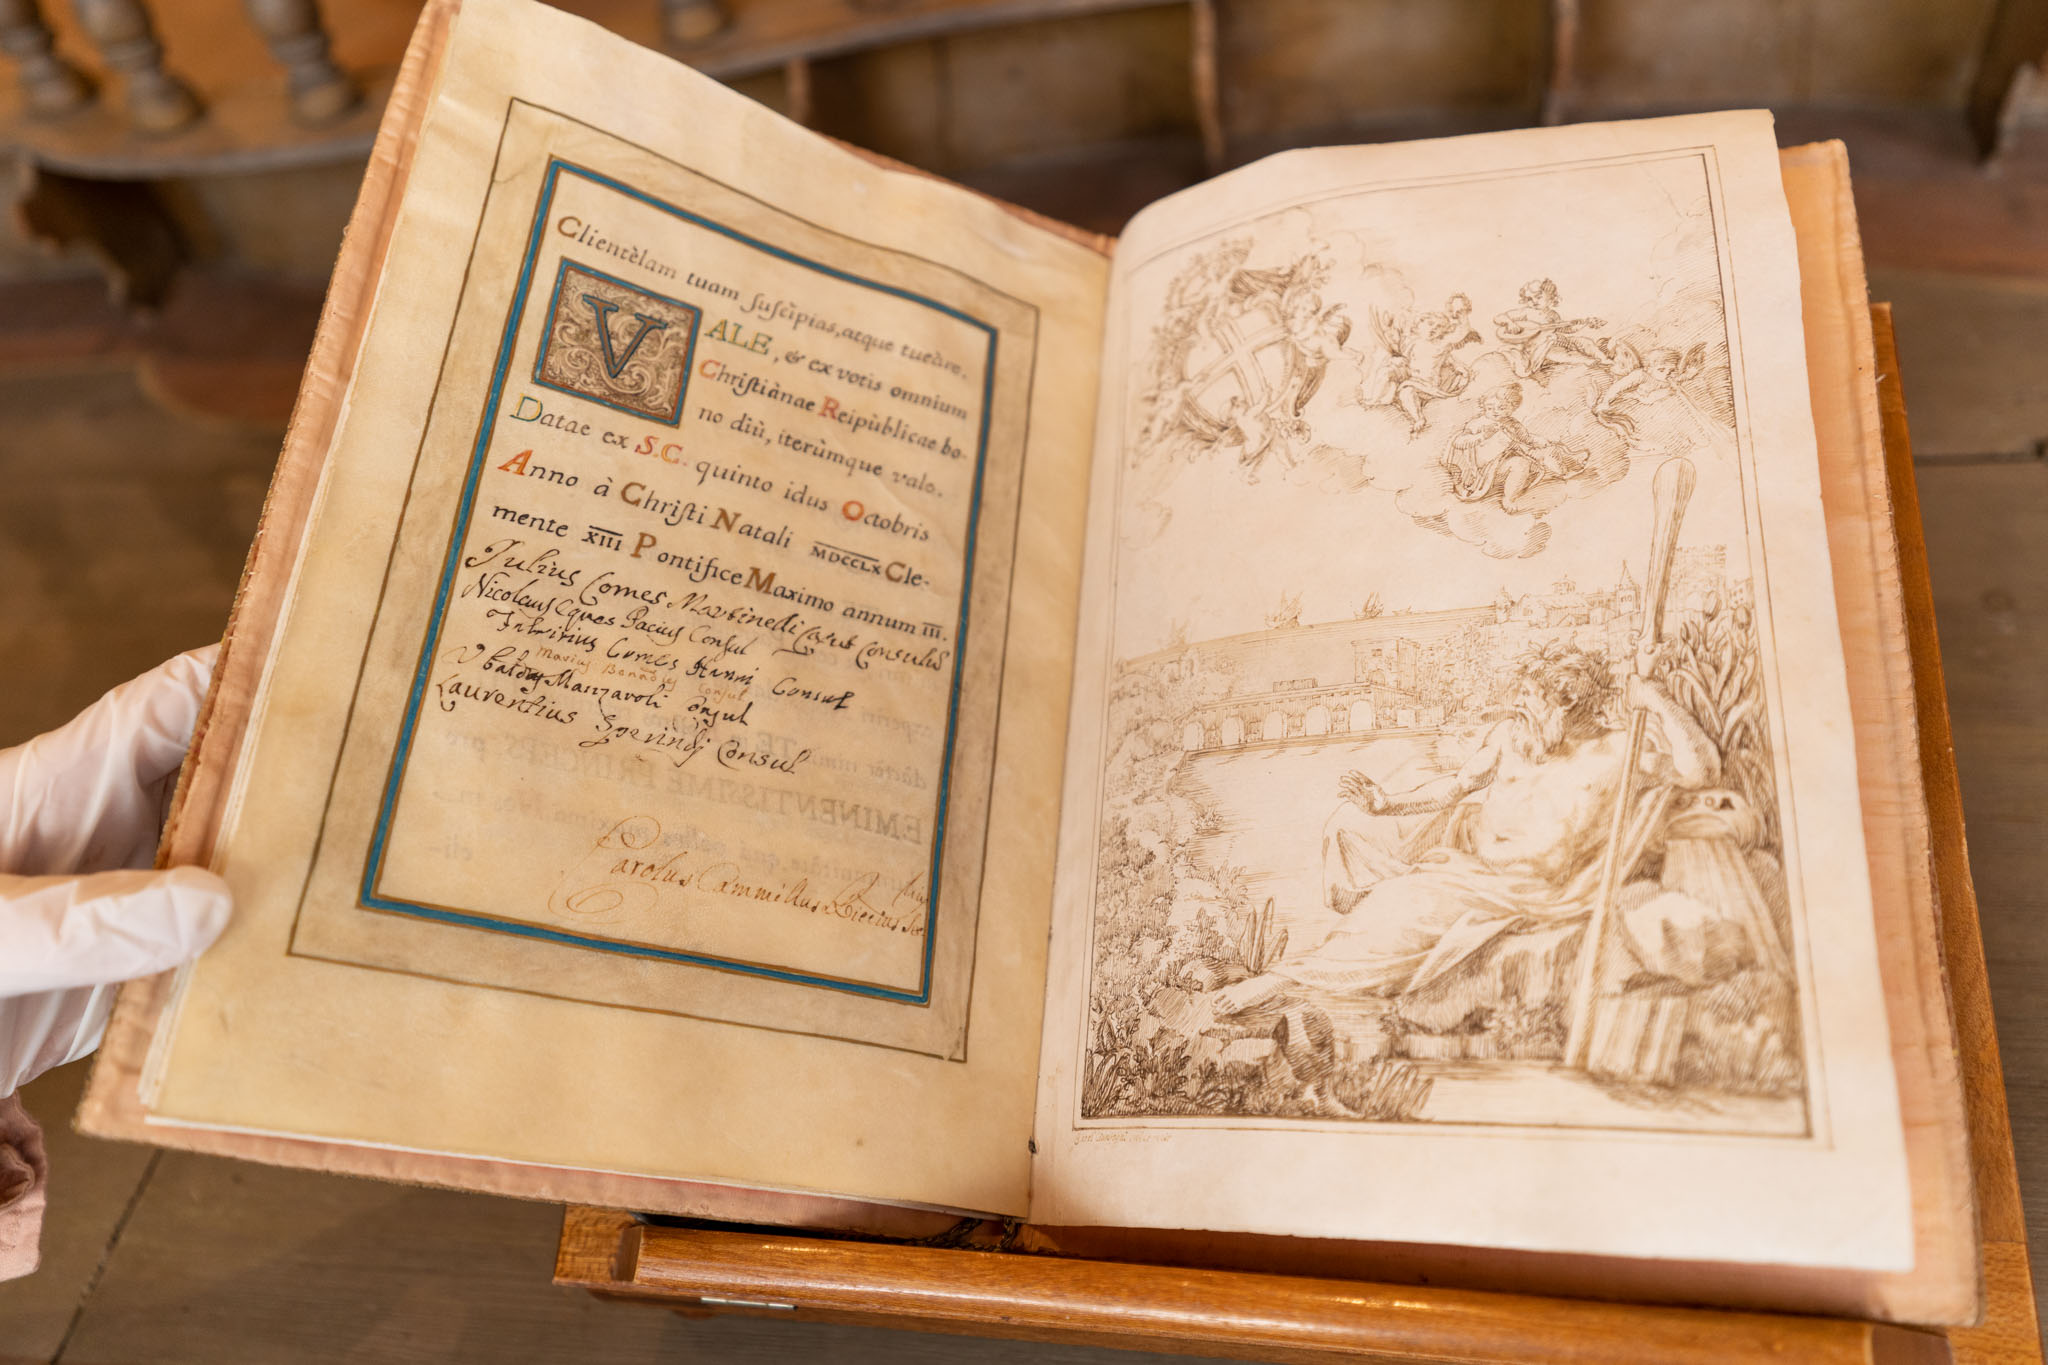 Clientèlam tuam suscìpias, atque tueàre.
VALE, & ex votis omnium
Christiànae Reipùblicae bo-
no diù, iterùmque vale.
Datae ex S.C. quinto idus Octobris
Anno à Christi Natali MDCCLX Cle-
mente XIII Pontifice Maximo annum III.
Julius Comes Martinedi Caput Consulus
Nicolaus Eques Pacius Consul
Comes Consul
Marius Consul
Ubaldus Manzaroli Consul
Laurentius Consul
Carolus Cammillus
EMINENTISSIME PRINCEPS